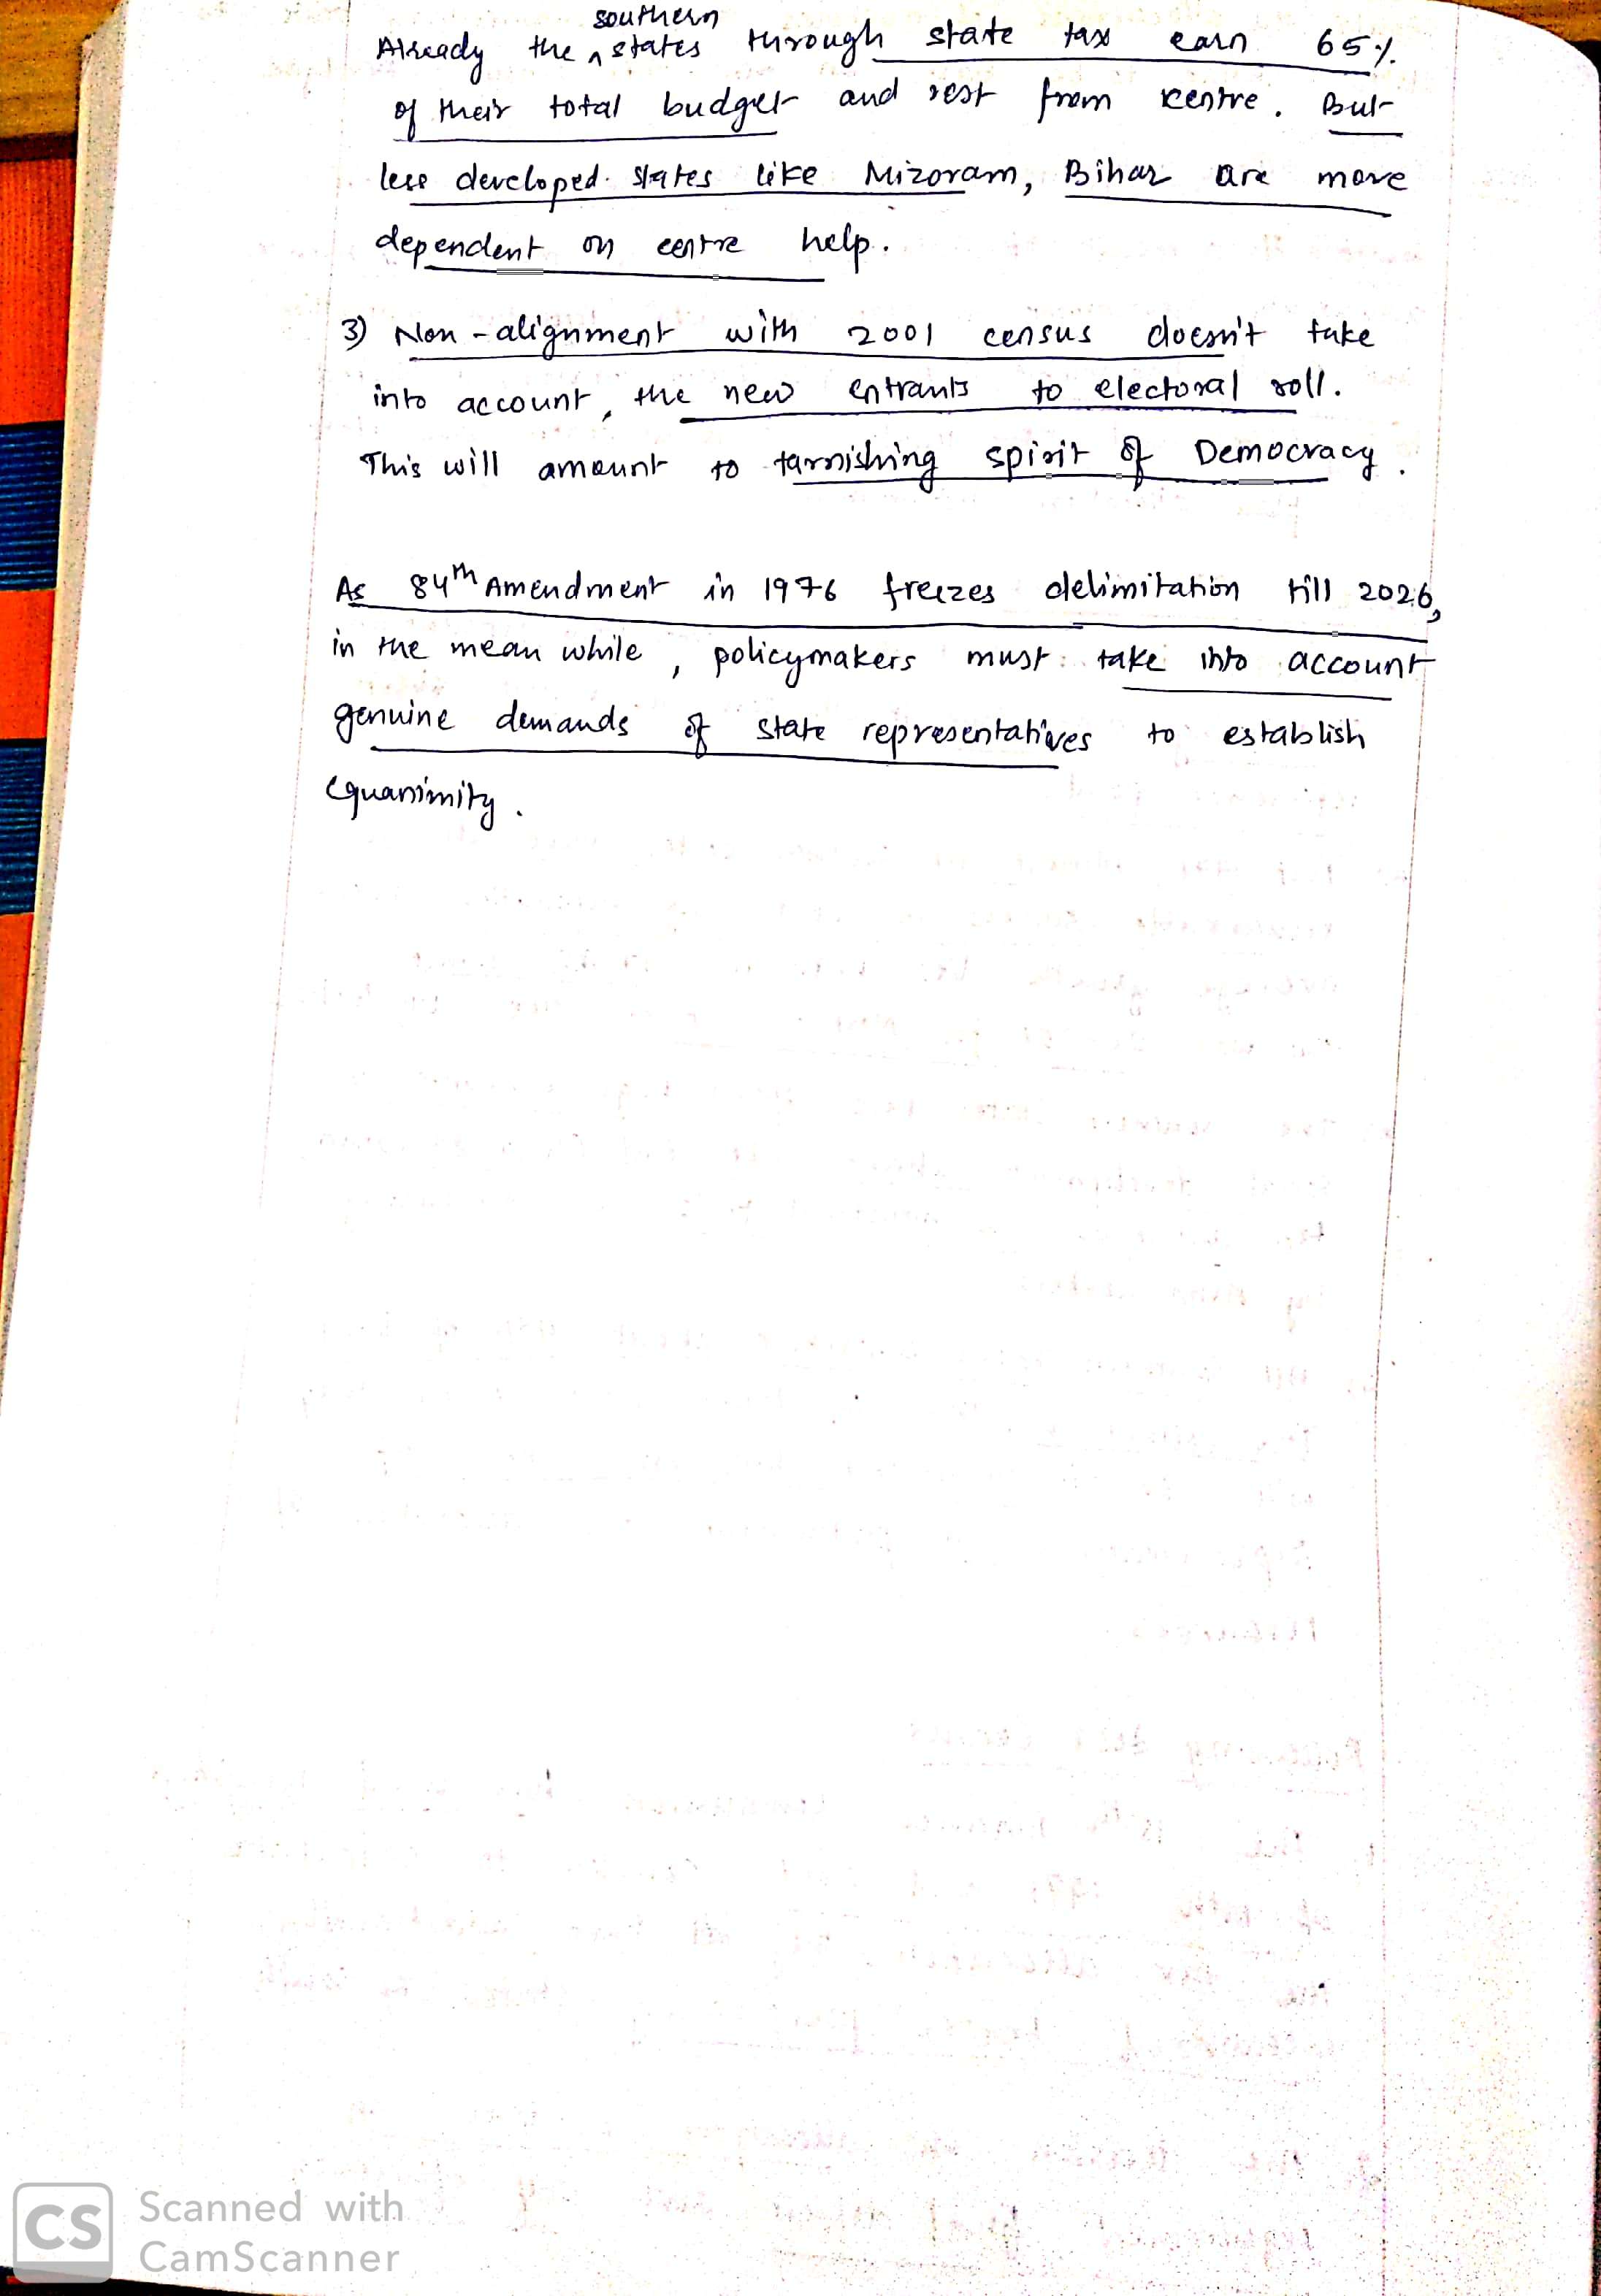 Already the southern states through state tax earn 65%
of their total budget and rest from centre. But
less developed states like Mizoram, Bihar are more
dependent on centre help.
3) Non-alignment with 2001 census doesn't take
into account, the new entrants to electoral roll.
This will amount to tarnishing spirit of Democracy.
As 84th Amendment in 1976 freezes delimitation till 2026,
in the mean while, policymakers must take into account
genuine demands of state representatives to establish
equanimity.
CS Scanned with
CamScanner